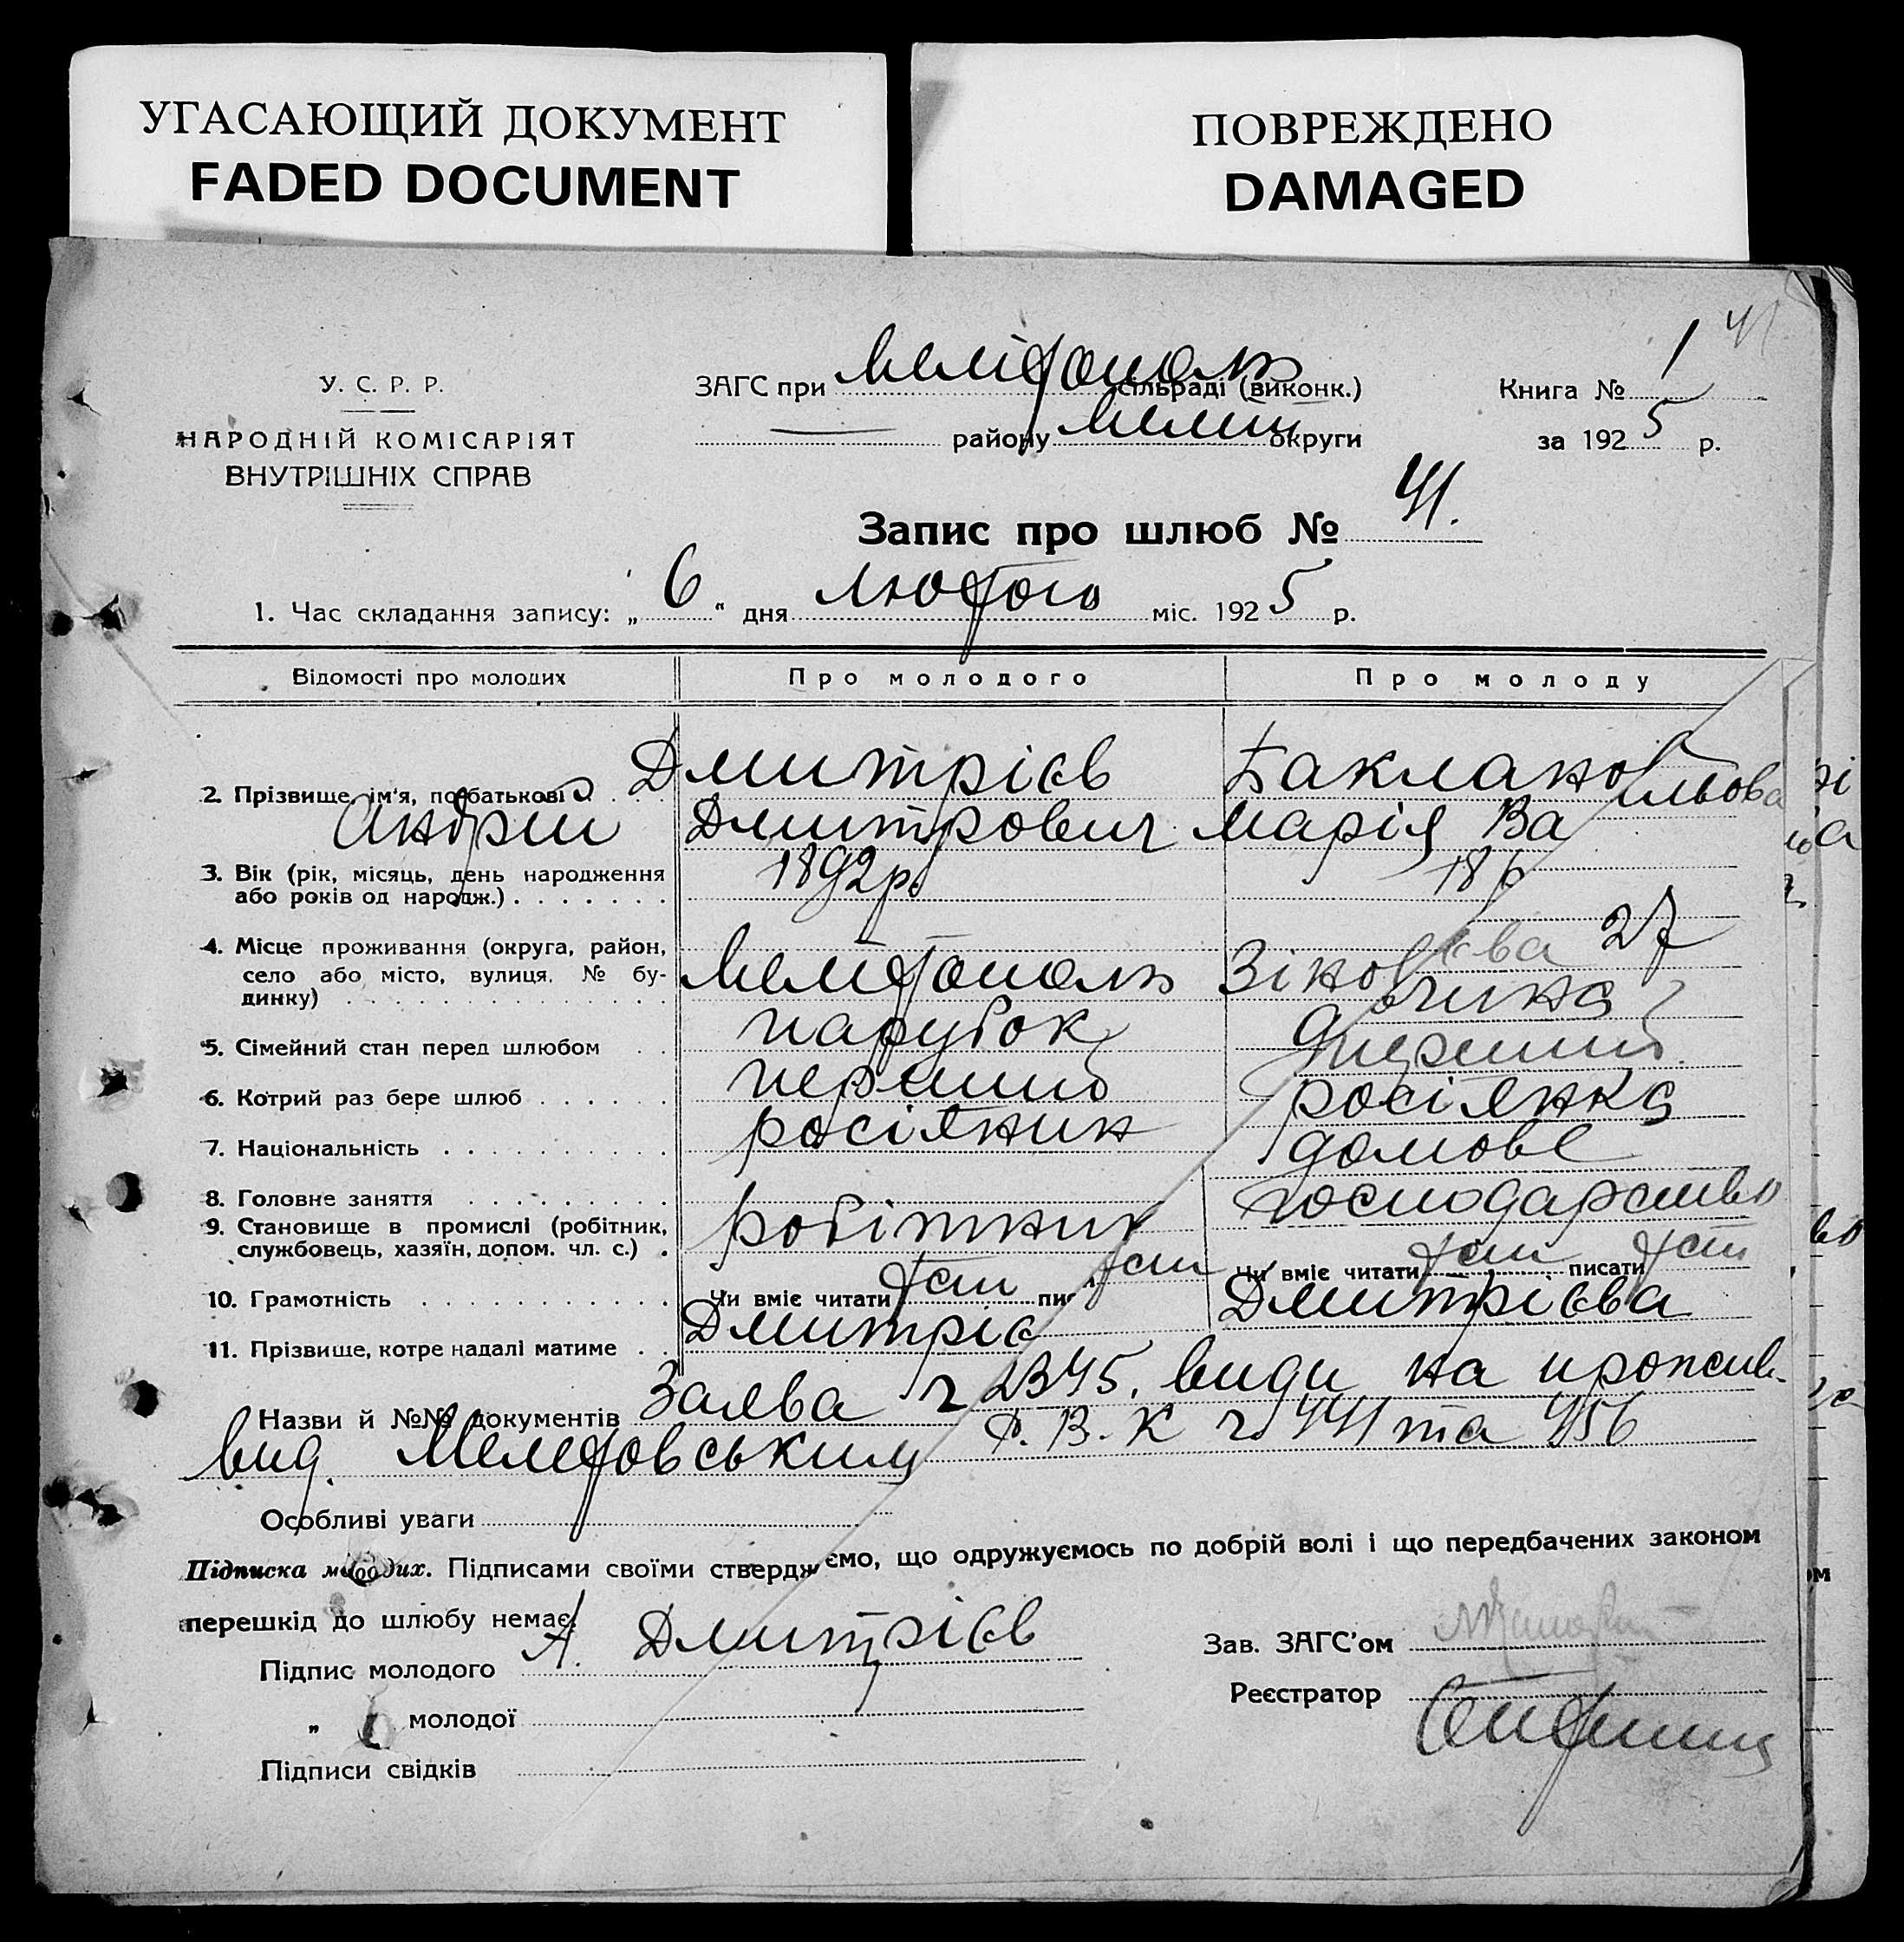 УГАСАЮЩИЙ ДОКУМЕНТ
FADED DOCUMENT
ПОВРЕЖДЕНО
DAMAGED
41
У. С. Р. Р.
НАРОДНІЙ КОМІСАРІЯТ
ВНУТРІШНІХ СПРАВ
ЗАГС при Мелітополь сільраді (виконк.)
— району Мелит округи
Книга № 1
за 1925 р.
Запис про шлюб № 41.
1. Час складання запису: „6“ дня лютого міс. 1925 р.
Відомості про молодих Про молодого Про молоду
2. Прізвище, ім'я, по батькові Дмитрієв Бакланова
Андрій Дмитрович Марія Ва льова
3. Вік (рік, місяць, день народження 1892 р. 18
або років од народж.)
4. Місце проживання (округа, район,
село або місто, вулиця, № бу-
динку) Мелітополь Зіновєва 27
5. Сімейний стан перед шлюбом парубок дівчина
6. Котрий раз бере шлюб перший перший
7. Національність росіянин росіянка
8. Головне заняття домове
9. Становище в промислі (робітник, робітник господарство
службовець, хазяїн, допом. чл. с.)
10. Грамотність Чи вміє читати так пис так Чи вміє читати так писати так
11. Прізвище, котре надалі матиме Дмитріє Дмитрієва
Назви й №№ документів Заява ч 2345. види на прожив.
вид. Мелітовським Р. В. К ч 441 та 456
Особливі уваги
Підписка молодих. Підписами своїми стверджуємо, що одружуємось по добрій волі і що передбачених законом
перешкід до шлюбу немає.
Підпис молодого А. Дмитрієв
„ молодої
Підписи свідків
Зав. ЗАГС'ом
Реєстратор